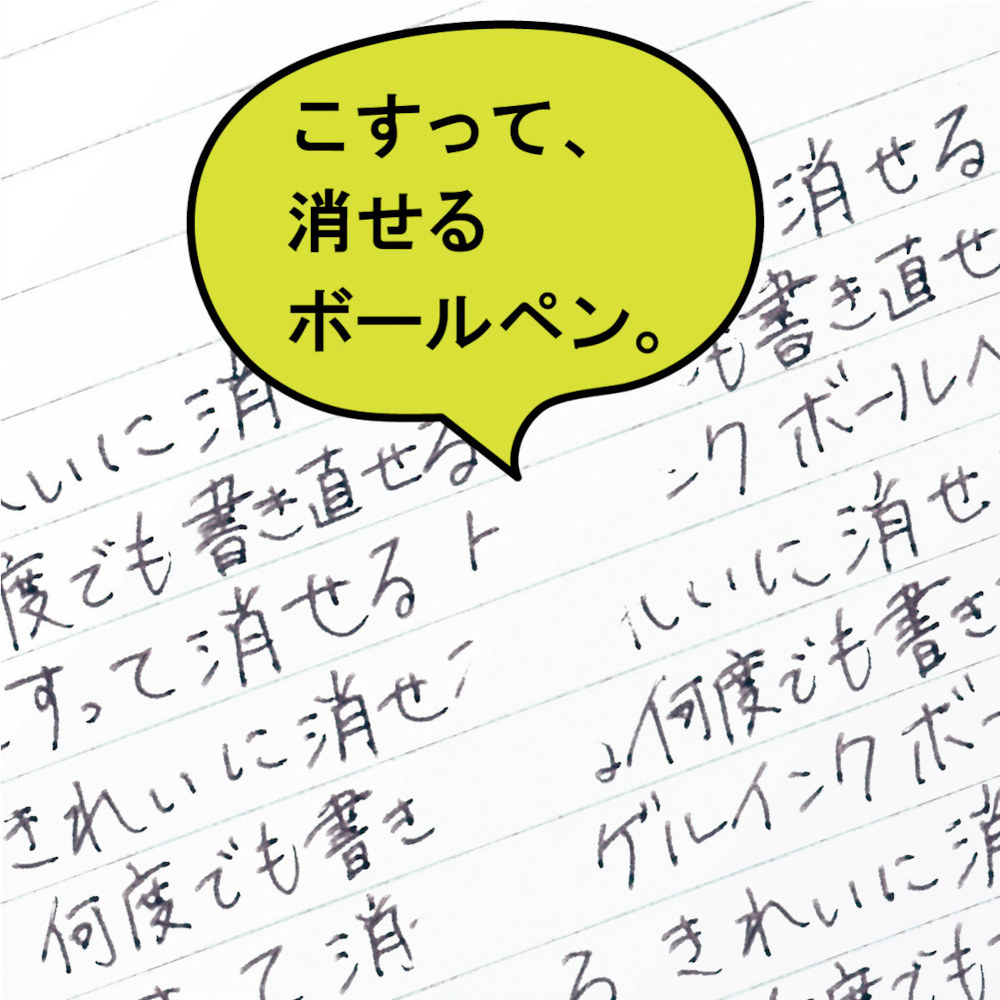 こすって、
消せる
ボールペン。
消せる
も書き直せ
ンクボールペ
いに消せ
何度でも書き
ゲルインクボー
きれいに消
何度でも
いに消
度でも書き直せる
すって消せる
きれいに消せ
何度でも書き
て消
る